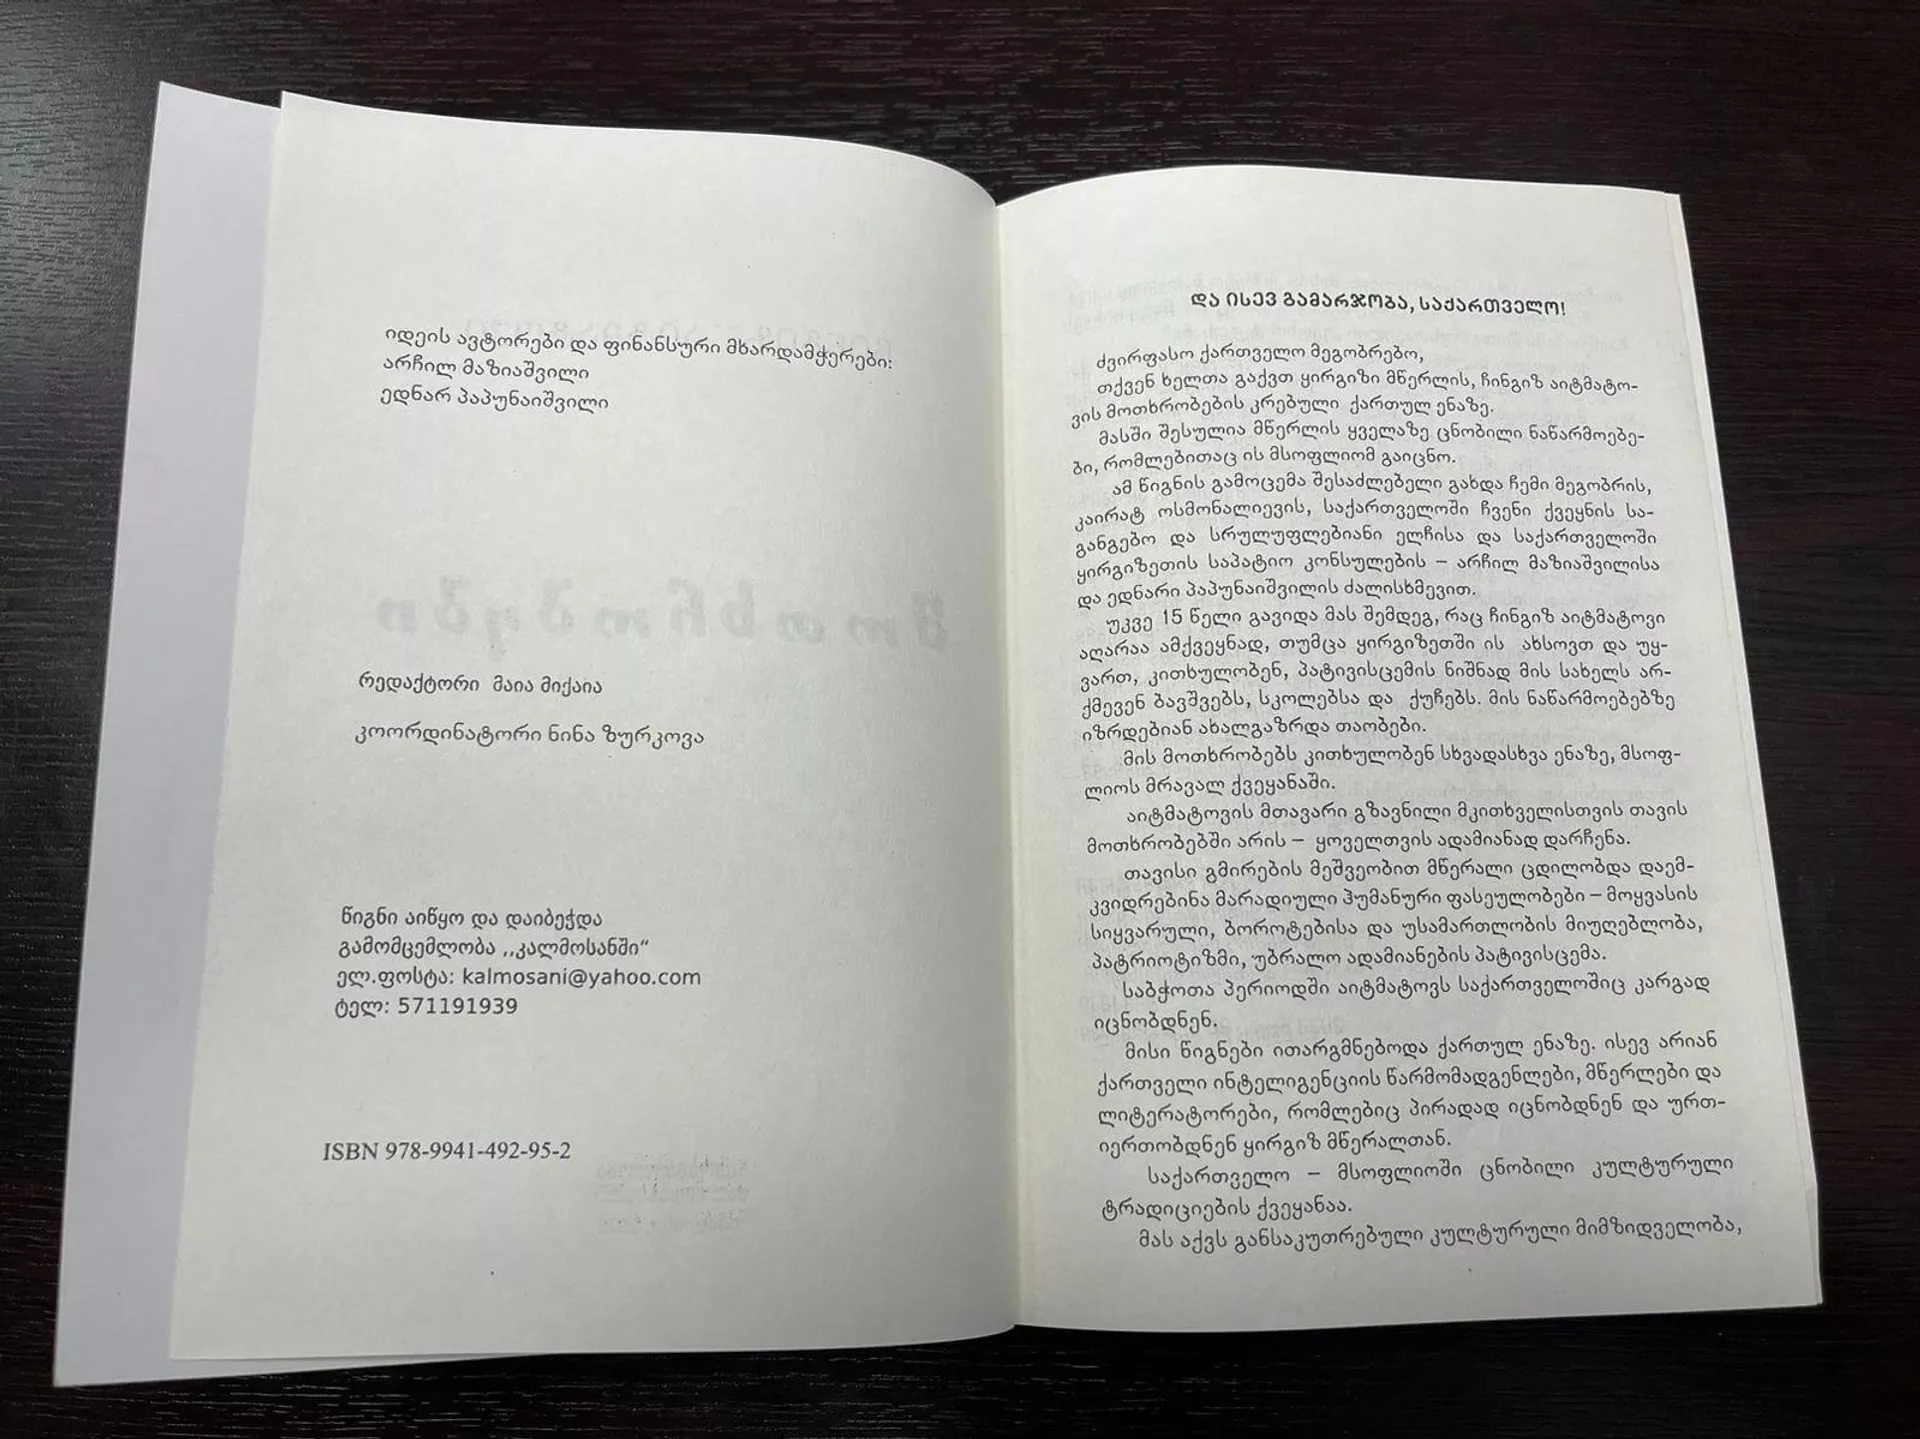 იდეის ავტორები და ფინანსური მხარდამჭერები:
არჩილ მაზიაშვილი
ედნარ პაპუნაიშვილი
რედაქტორი მაია მიქაია
კოორდინატორი ნინა ზურკოვა
წიგნი აიწყო და დაიბეჭდა
გამომცემლობა ,,კალმოსანში“
ელ.ფოსტა: kalmosani@yahoo.com
ტელ: 571191939
ISBN 978-9941-492-95-2
ᲓᲐ ᲘᲡᲔᲕ ᲒᲐᲛᲐᲠᲯᲝᲑᲐ, ᲡᲐᲥᲐᲠᲗᲕᲔᲚᲝ!
ძვირფასო ქართველო მეგობრებო,
თქვენ ხელთა გაქვთ ყირგიზი მწერლის, ჩინგიზ აიტმატო-
ვის მოთხრობების კრებული ქართულ ენაზე.
მასში შესულია მწერლის ყველაზე ცნობილი ნაწარმოებე-
ბი, რომლებითაც ის მსოფლიომ გაიცნო.
ამ წიგნის გამოცემა შესაძლებელი გახდა ჩემი მეგობრის,
კაირატ ოსმონალიევის, საქართველოში ჩვენი ქვეყნის სა-
განგებო და სრულუფლებიანი ელჩისა და საქართველოში
ყირგიზეთის საპატიო კონსულების – არჩილ მაზიაშვილისა
და ედნარი პაპუნაიშვილის ძალისხმევით.
უკვე 15 წელი გავიდა მას შემდეგ, რაც ჩინგიზ აიტმატოვი
აღარაა ამქვეყნად, თუმცა ყირგიზეთში ის ახსოვთ და უყ-
ვართ, კითხულობენ, პატივისცემის ნიშნად მის სახელს არ-
ქმევენ ბავშვებს, სკოლებსა და ქუჩებს. მის ნაწარმოებებზე
იზრდებიან ახალგაზრდა თაობები.
მის მოთხრობებს კითხულობენ სხვადასხვა ენაზე, მსოფ-
ლიოს მრავალ ქვეყანაში.
აიტმატოვის მთავარი გზავნილი მკითხველისთვის თავის
მოთხრობებში არის – ყოველთვის ადამიანად დარჩენა.
თავისი გმირების მეშვეობით მწერალი ცდილობდა დაემ-
კვიდრებინა მარადიული ჰუმანური ფასეულობები – მოყვასის
სიყვარული, ბოროტებისა და უსამართლობის მიუღებლობა,
პატრიოტიზმი, უბრალო ადამიანების პატივისცემა.
საბჭოთა პერიოდში აიტმატოვს საქართველოშიც კარგად
იცნობდნენ.
მისი წიგნები ითარგმნებოდა ქართულ ენაზე. ისევ არიან
ქართველი ინტელიგენციის წარმომადგენლები, მწერლები და
ლიტერატორები, რომლებიც პირადად იცნობდნენ და ურთ-
იერთობდნენ ყირგიზ მწერალთან.
საქართველო – მსოფლიოში ცნობილი კულტურული
ტრადიციების ქვეყანაა.
მას აქვს განსაკუთრებული კულტურული მიმზიდველობა,